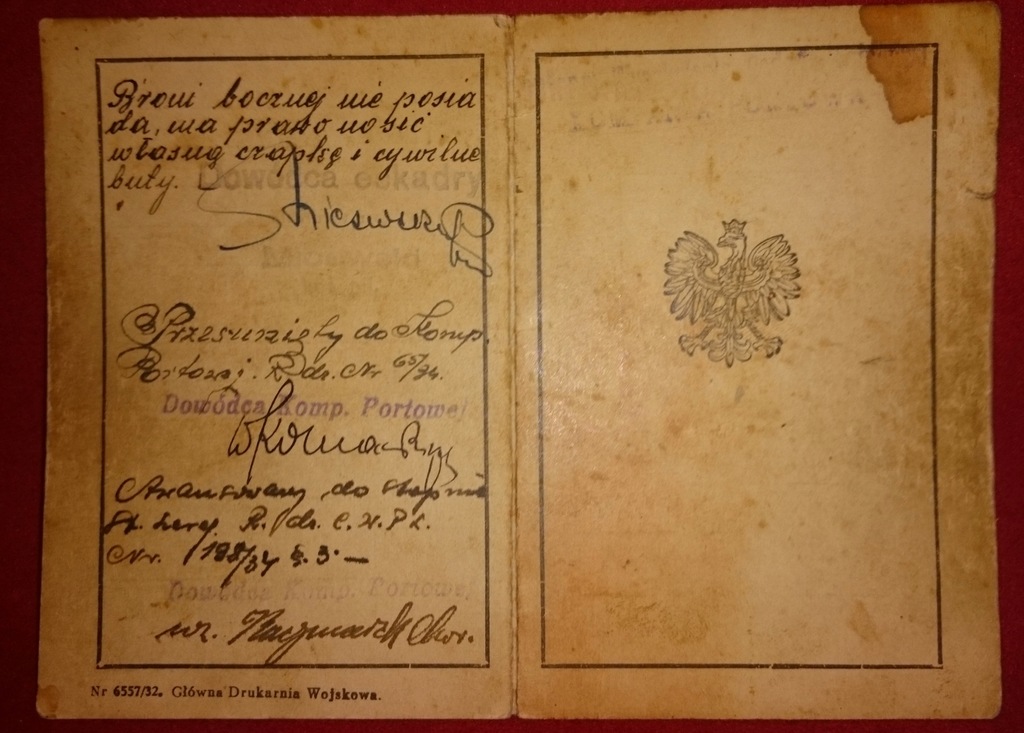 Broni bocznej nie posia
da, ma prawo nosić
własną czapkę i cywilne
buty.
Dowódca eskadry
Przesunięty do Komp.
Portowej. R. dz. Nr 65/34.
Dowódca Komp. Portowej
Awansowany do stopnia
St. szereg. R. dz. C.W.P.L.
Nr. 198/34 §. 3. —
Dowódca Komp. Portowej
wz. Kaczmarek Chor.
Nr 6557/32. Główna Drukarnia Wojskowa.